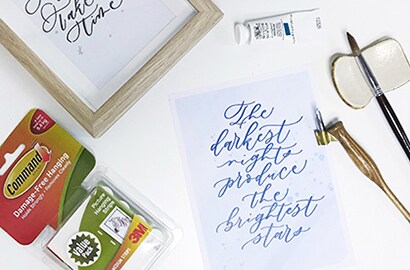 take
time
Command
Damage-Free Hanging
Value
Pack
3M
The
darkest
nights
produce
the
brightest
stars